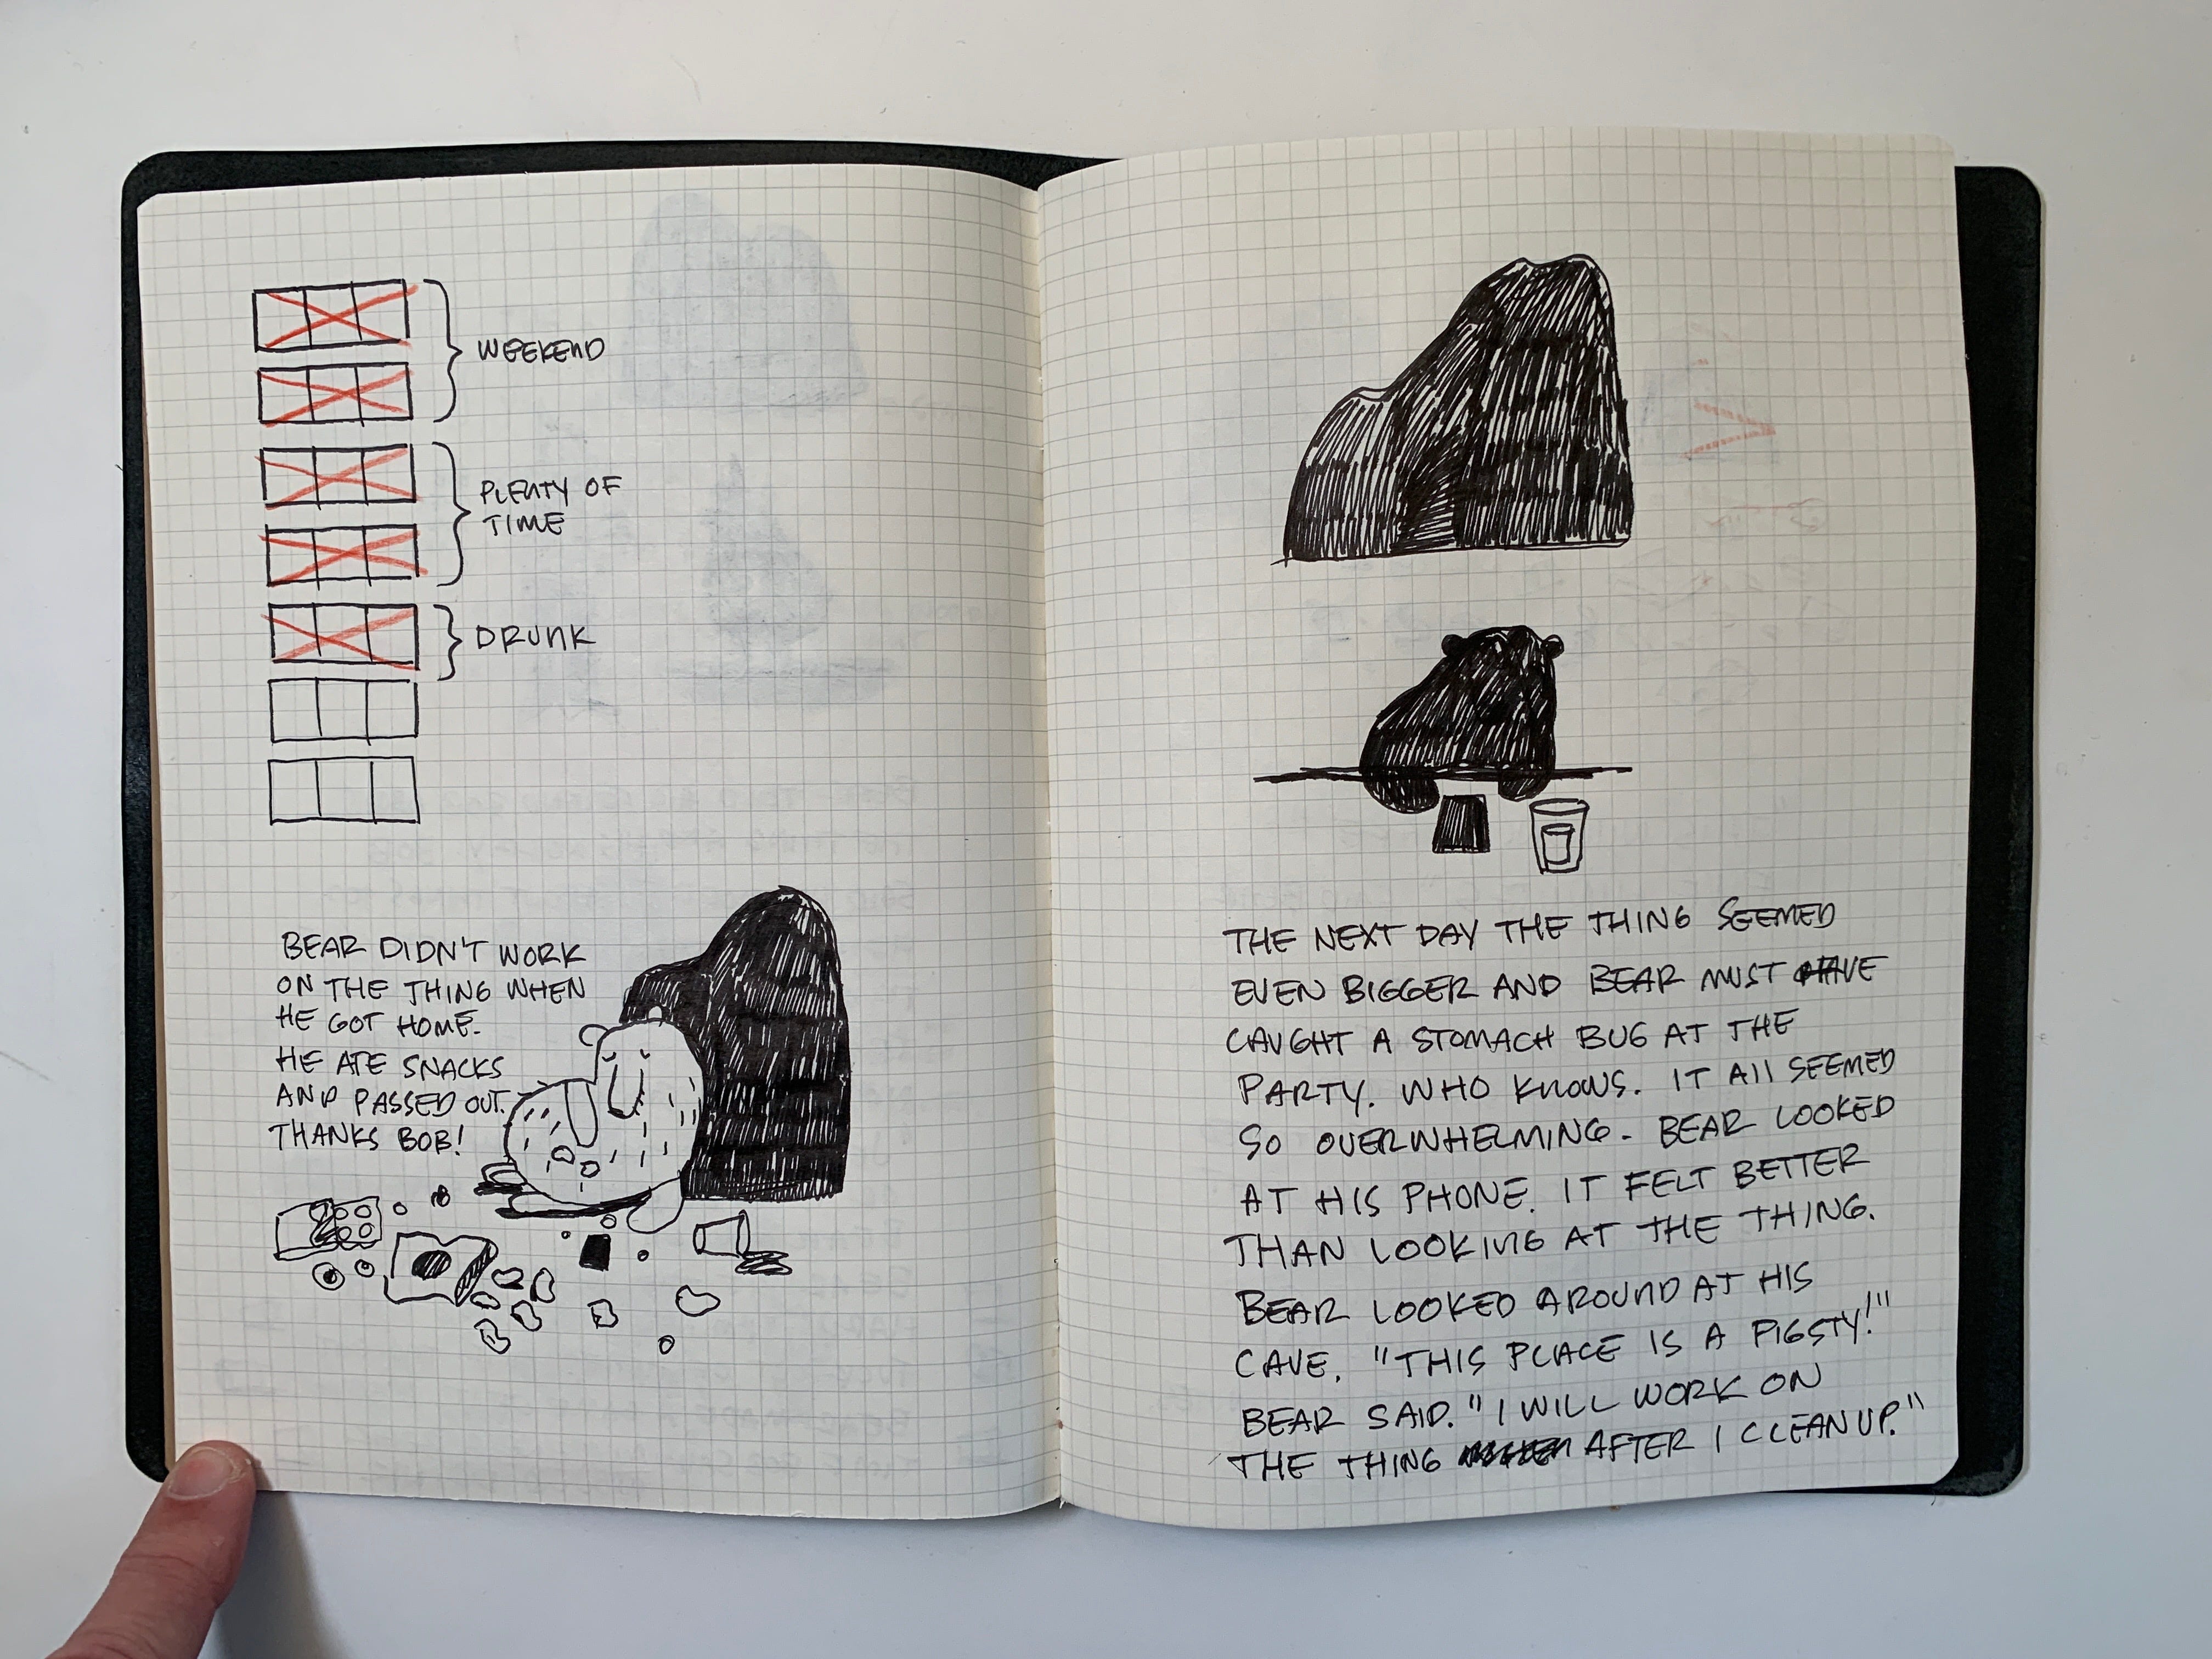 WEEKEND
PLENTY OF
TIME
DRUNK
BEAR DIDN'T WORK
ON THE THING WHEN
HE GOT HOME.
HE ATE SNACKS
AND PASSED OUT.
THANKS BOB!
THE NEXT DAY THE THING SEEMED
EVEN BIGGER AND BEAR MUST HAVE
CAUGHT A STOMACH BUG AT THE
PARTY. WHO KNOWS. IT All SEEMED
SO OVERWHELMING. BEAR LOOKED
AT HIS PHONE. IT FELT BETTER
THAN LOOKING AT THE THING.
BEAR LOOKED AROUND AT HIS
CAVE. "THIS PLACE IS A PIGSTY!"
BEAR SAID. "I WILL WORK ON
THE THING AFTER I CLEAN UP."